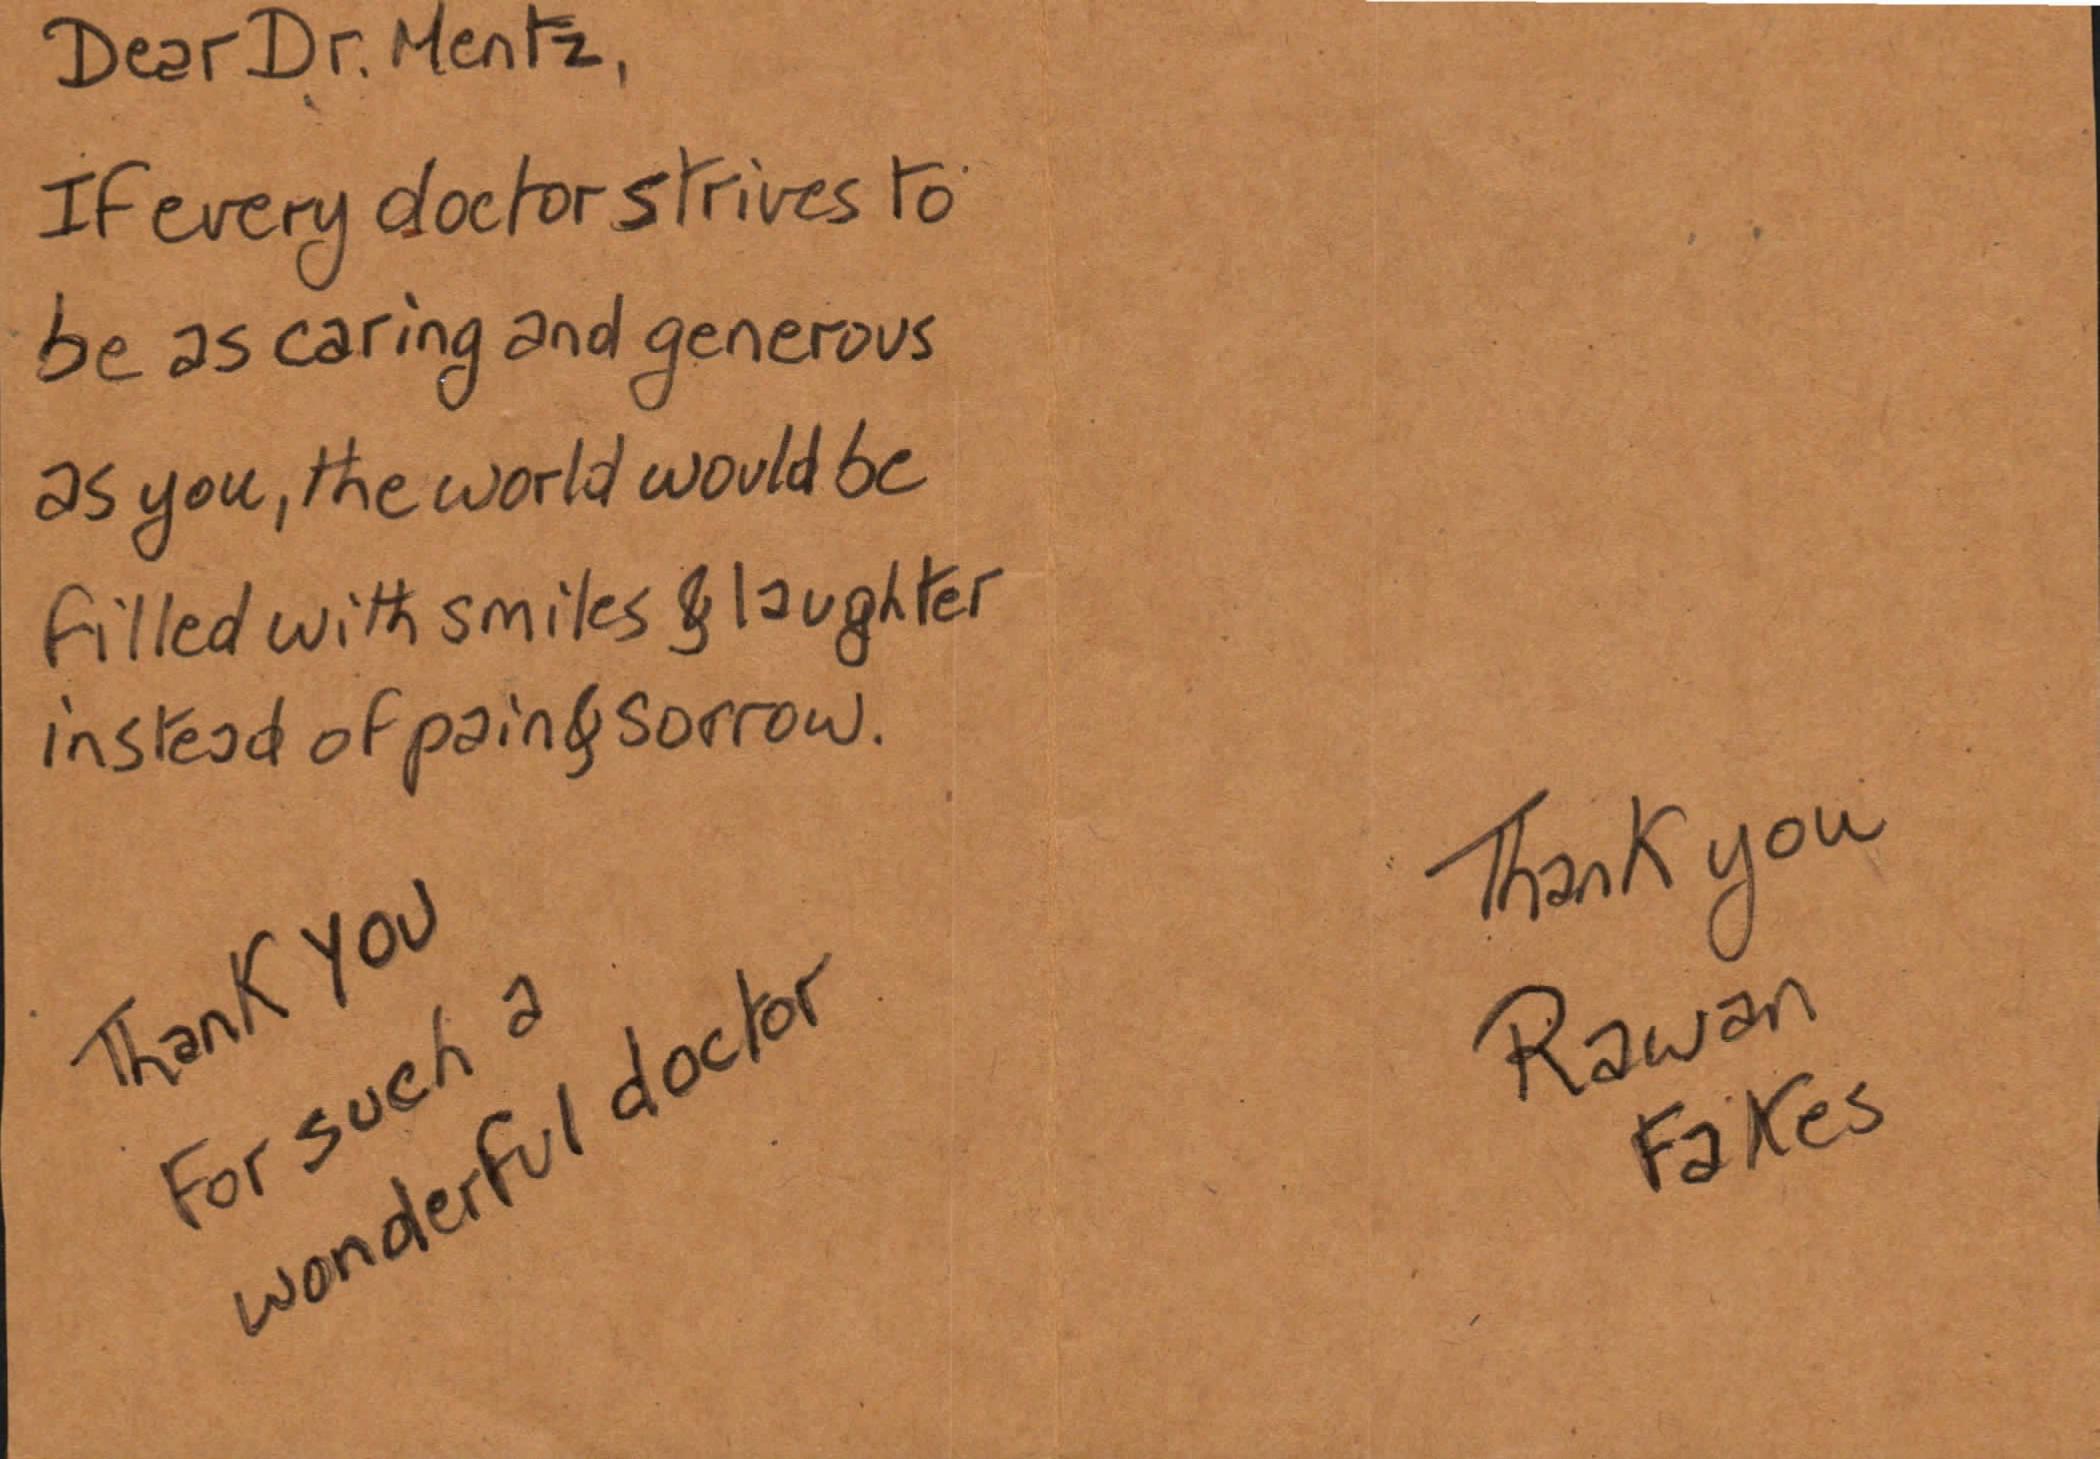 Dear Dr. Mentz,
If every doctor strives to
be as caring and generous
as you, the world would be
filled with smiles & laughter
instead of pain & sorrow.
Thank You
For such a
wonderful doctor
Thank you
Rawan
Fakes